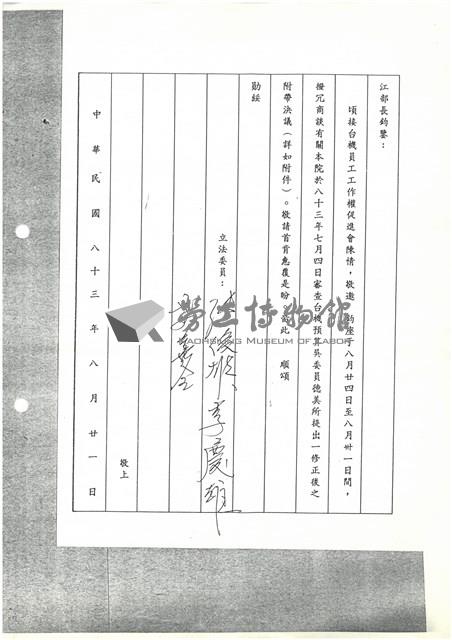 江部長鈞鑒：
頃接台機員工工作權促進會陳情，敬邀　鈞座于八月廿四日至八月卅一日間，
撥冗商談有關本院於八十三年七月四日審查台機預算吳委員德美所提出一修正後之
附帶決議（詳如附件）。敬請首肯惠覆是盼　此　順頌
勛綏
立法委員：張俊雄、李慶雄
敬上
中華民國八十三年八月廿一日
勞工博物館
KAOHSIUNG MUSEUM OF LABOR